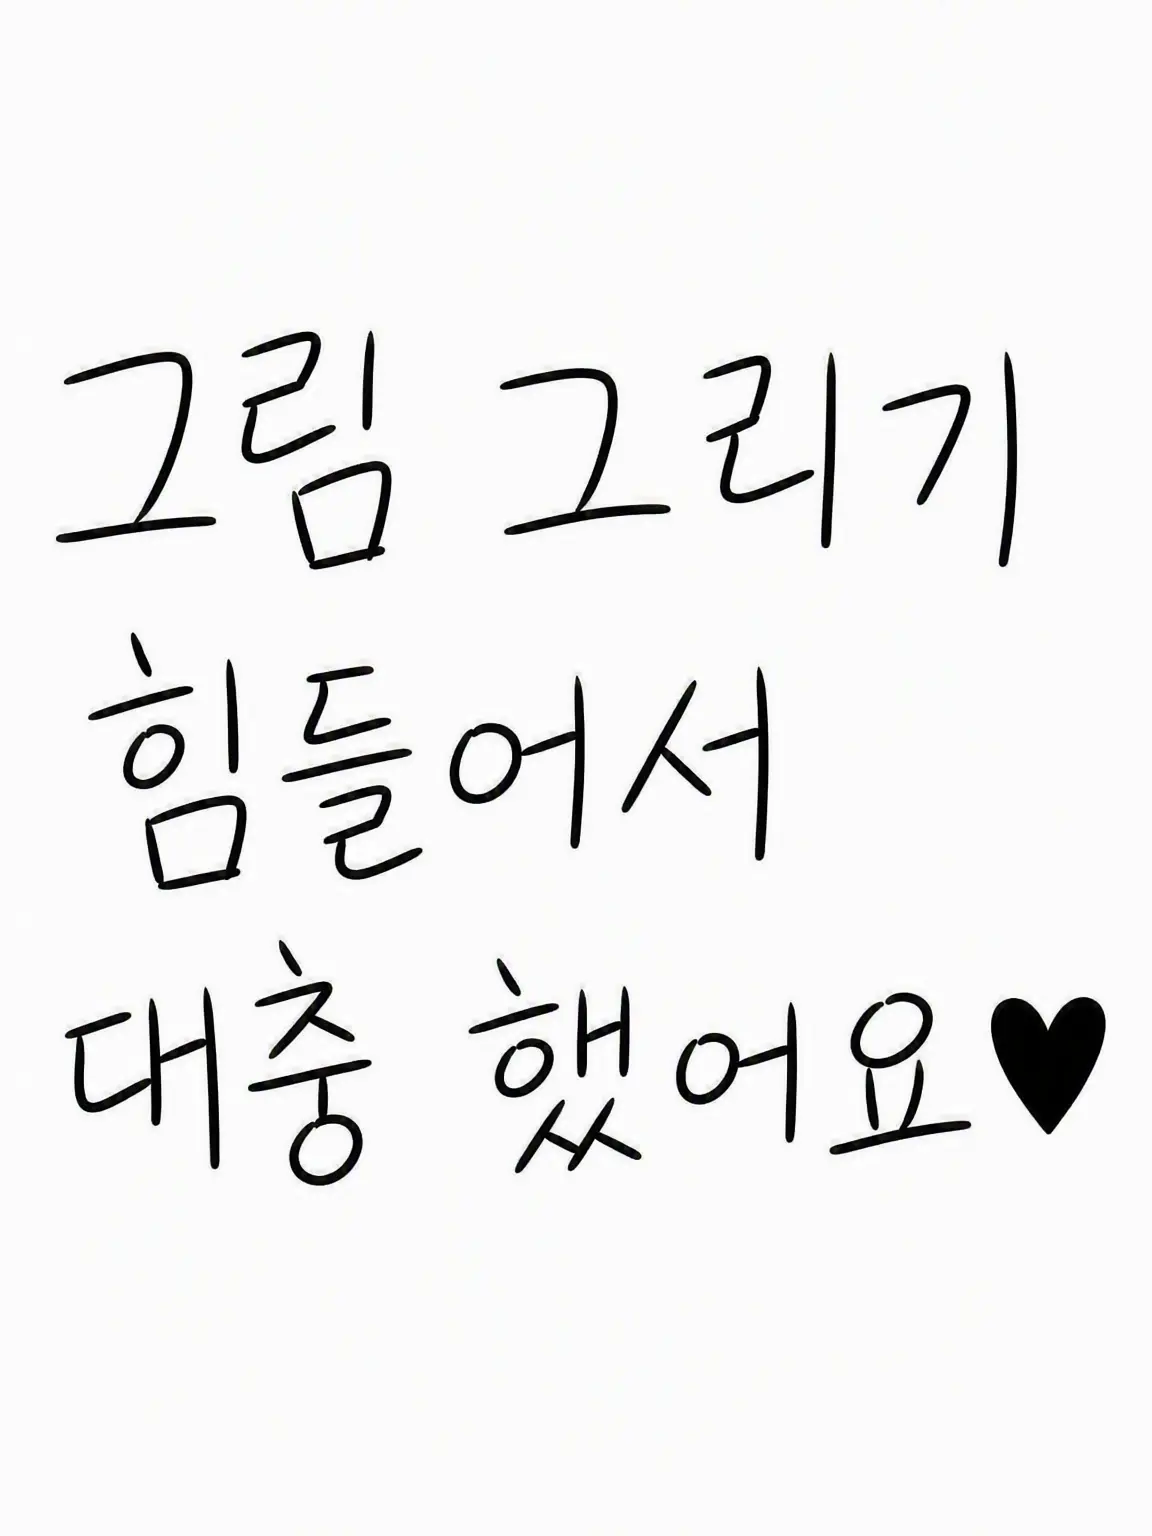 그림 그리기
힘들어서
대충 했어요♥